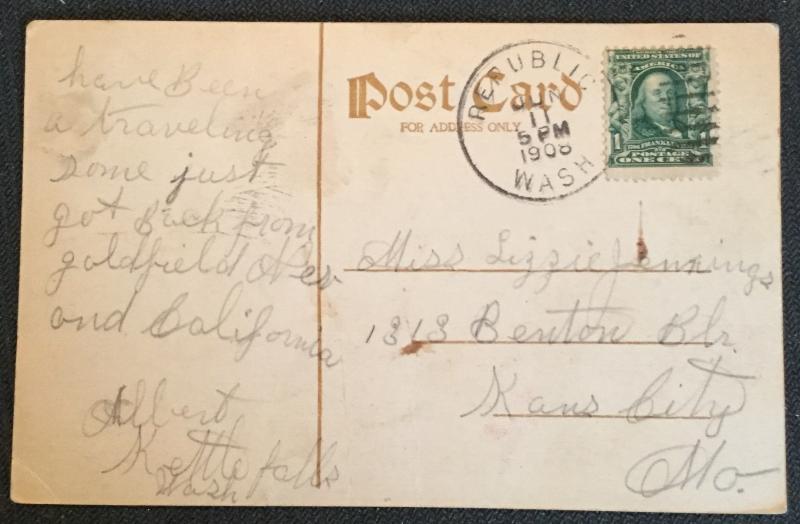 have Been
a traveling
some just
got Back from
goldfield Nev
and California
Albert
Kettle falls
Wash
Post Card
FOR ADDRESS ONLY
REPUBLIC
JUN
11
5 PM
1908
WASH
UNITED STATES OF
AMERICA
1
FRANKLIN
POSTAGE
ONE CENT
Miss Lizzie Jennings
1313 Benton Blv.
Kans City
Mo.